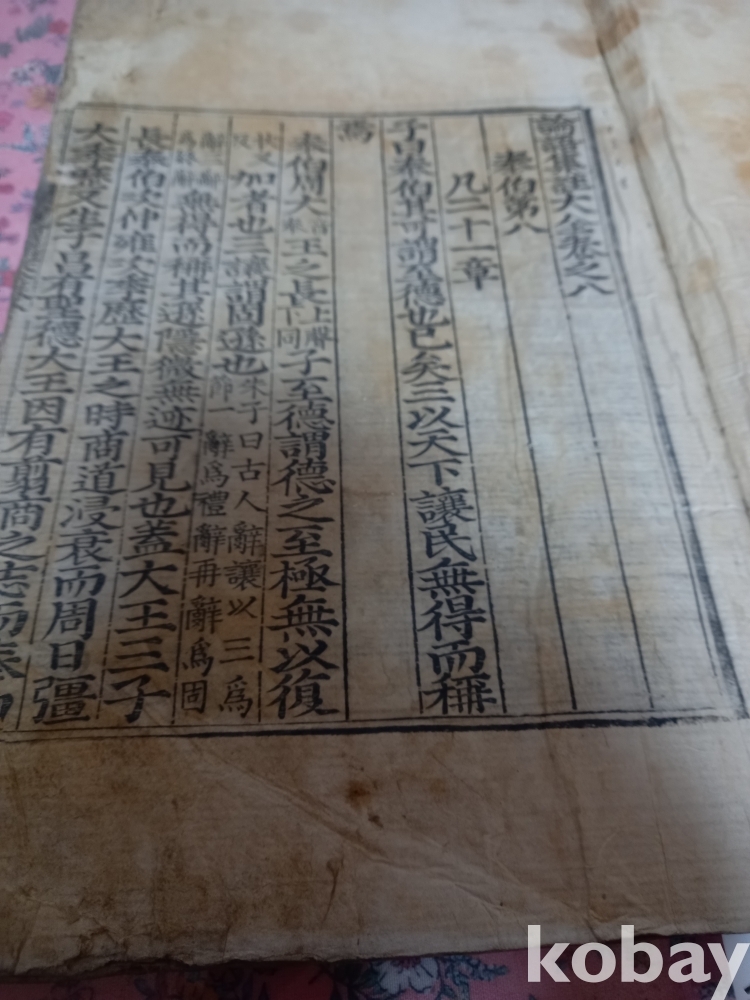 論語集註大全卷之八
泰伯第八
凡二十一章
子曰泰伯其可謂至德也已矣三以天下讓民無得而稱
焉
泰伯周大音泰王之長上聲下同子至德謂德之至極無以復
扶又反加者也三讓謂固遜也朱子曰古人辭讓以三爲
節一辭爲禮辭再辭爲固
辭三辭爲終辭無得而稱其遜隱微無迹可見也蓋大王三子
長泰伯次仲雍次季歷大王之時商道浸衰而周日彊
大季歷又生子昌有聖德大王因有翦商之志而泰伯